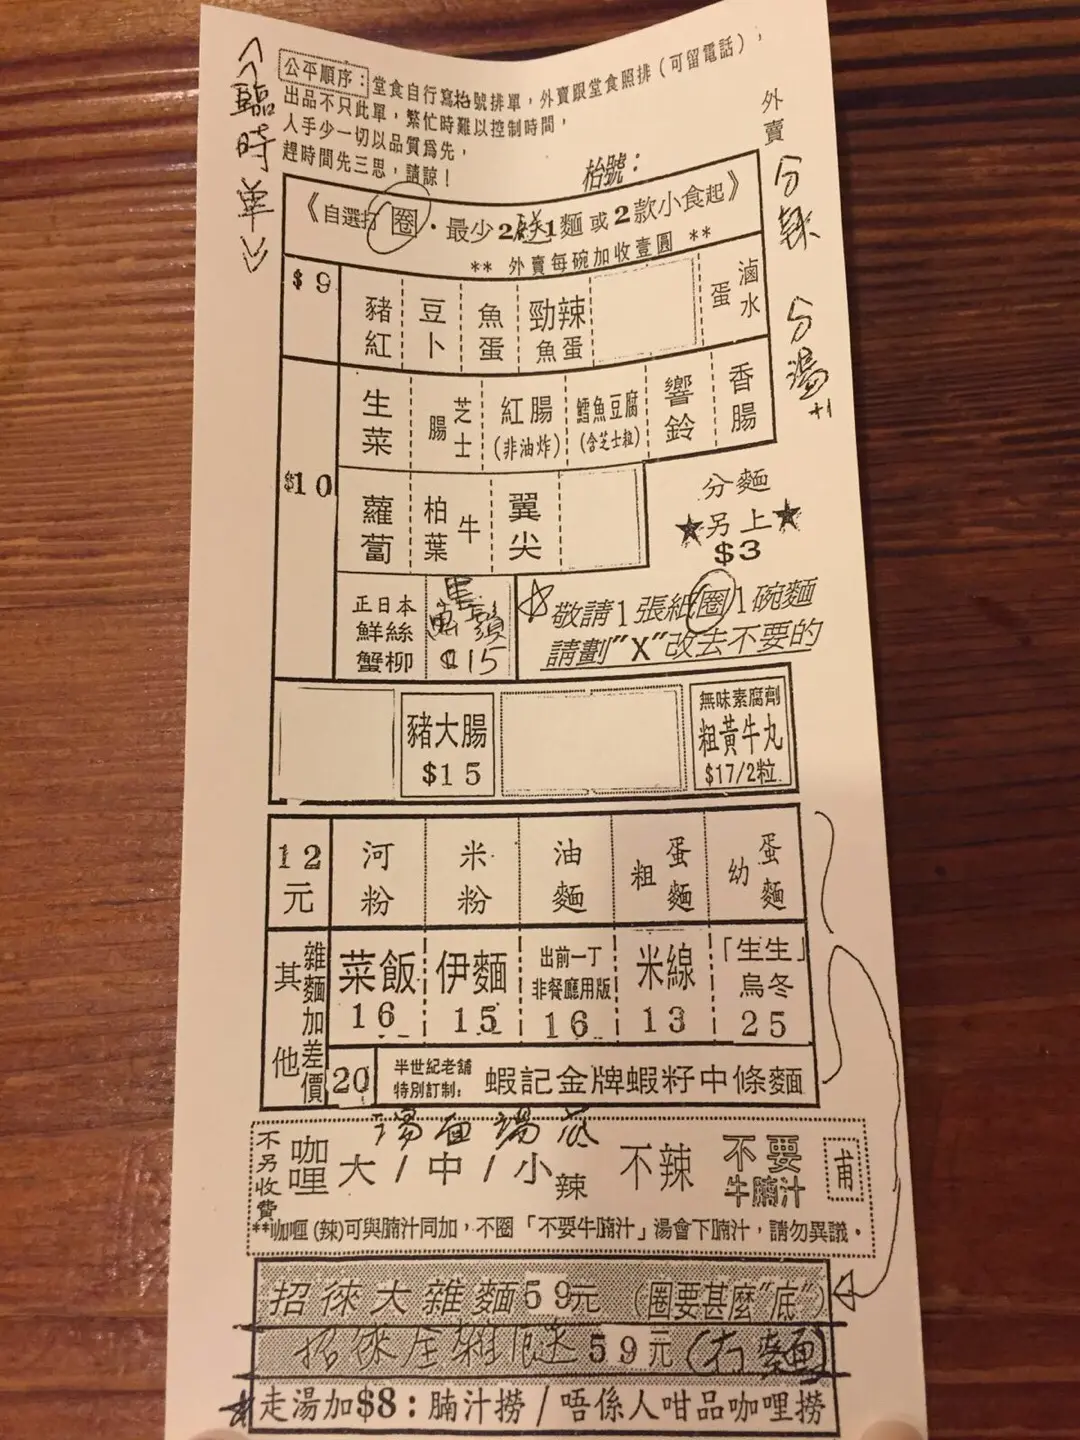 <臨時單>
公平順序：堂食自行寫枱號排單，外賣跟堂食照排（可留電話），
出品不只此單，繁忙時難以控制時間，
人手少一切以品質為先，
趕時間先三思，請諒！
枱號：
外賣 分辣 分湯+1
《自選打圈．最少2餸1麵或2款小食起》
** 外賣每碗加收壹圓 **
$9
豬紅
豆卜
魚蛋
勁辣魚蛋
滷水蛋
$10
生菜
芝士腸
紅腸(非油炸)
鱈魚豆腐(含芝士粒)
響鈴
香腸
蘿蔔
牛柏葉
翼尖
分麵
★另上★
$3
正日本鮮絲蟹柳
$15
敬請1張紙圈1碗麵
請劃"X"改去不要的
豬大腸
$15
無味素腐劑
粗黃牛丸
$17/2粒
12元
河粉
米粉
油麵
粗蛋麵
幼蛋麵
其他
雜麵加差價
菜飯
16
伊麵
15
出前一丁
非餐廳用版
16
米線
13
「生生」烏冬
25
20
半世紀老舖
特別訂制：
蝦記金牌蝦籽中條麵
不另收費
咖哩
大/中/小辣
不辣
不要牛腩汁
甫
**咖喱(辣)可與腩汁同加，不圈「不要牛腩汁」湯會下腩汁，請勿異議。
招徠大雜麵59元（圈要甚麼"底"）
招徠全雜餸59元（冇麵）
走湯加$8：腩汁撈/唔係人咁品咖哩撈